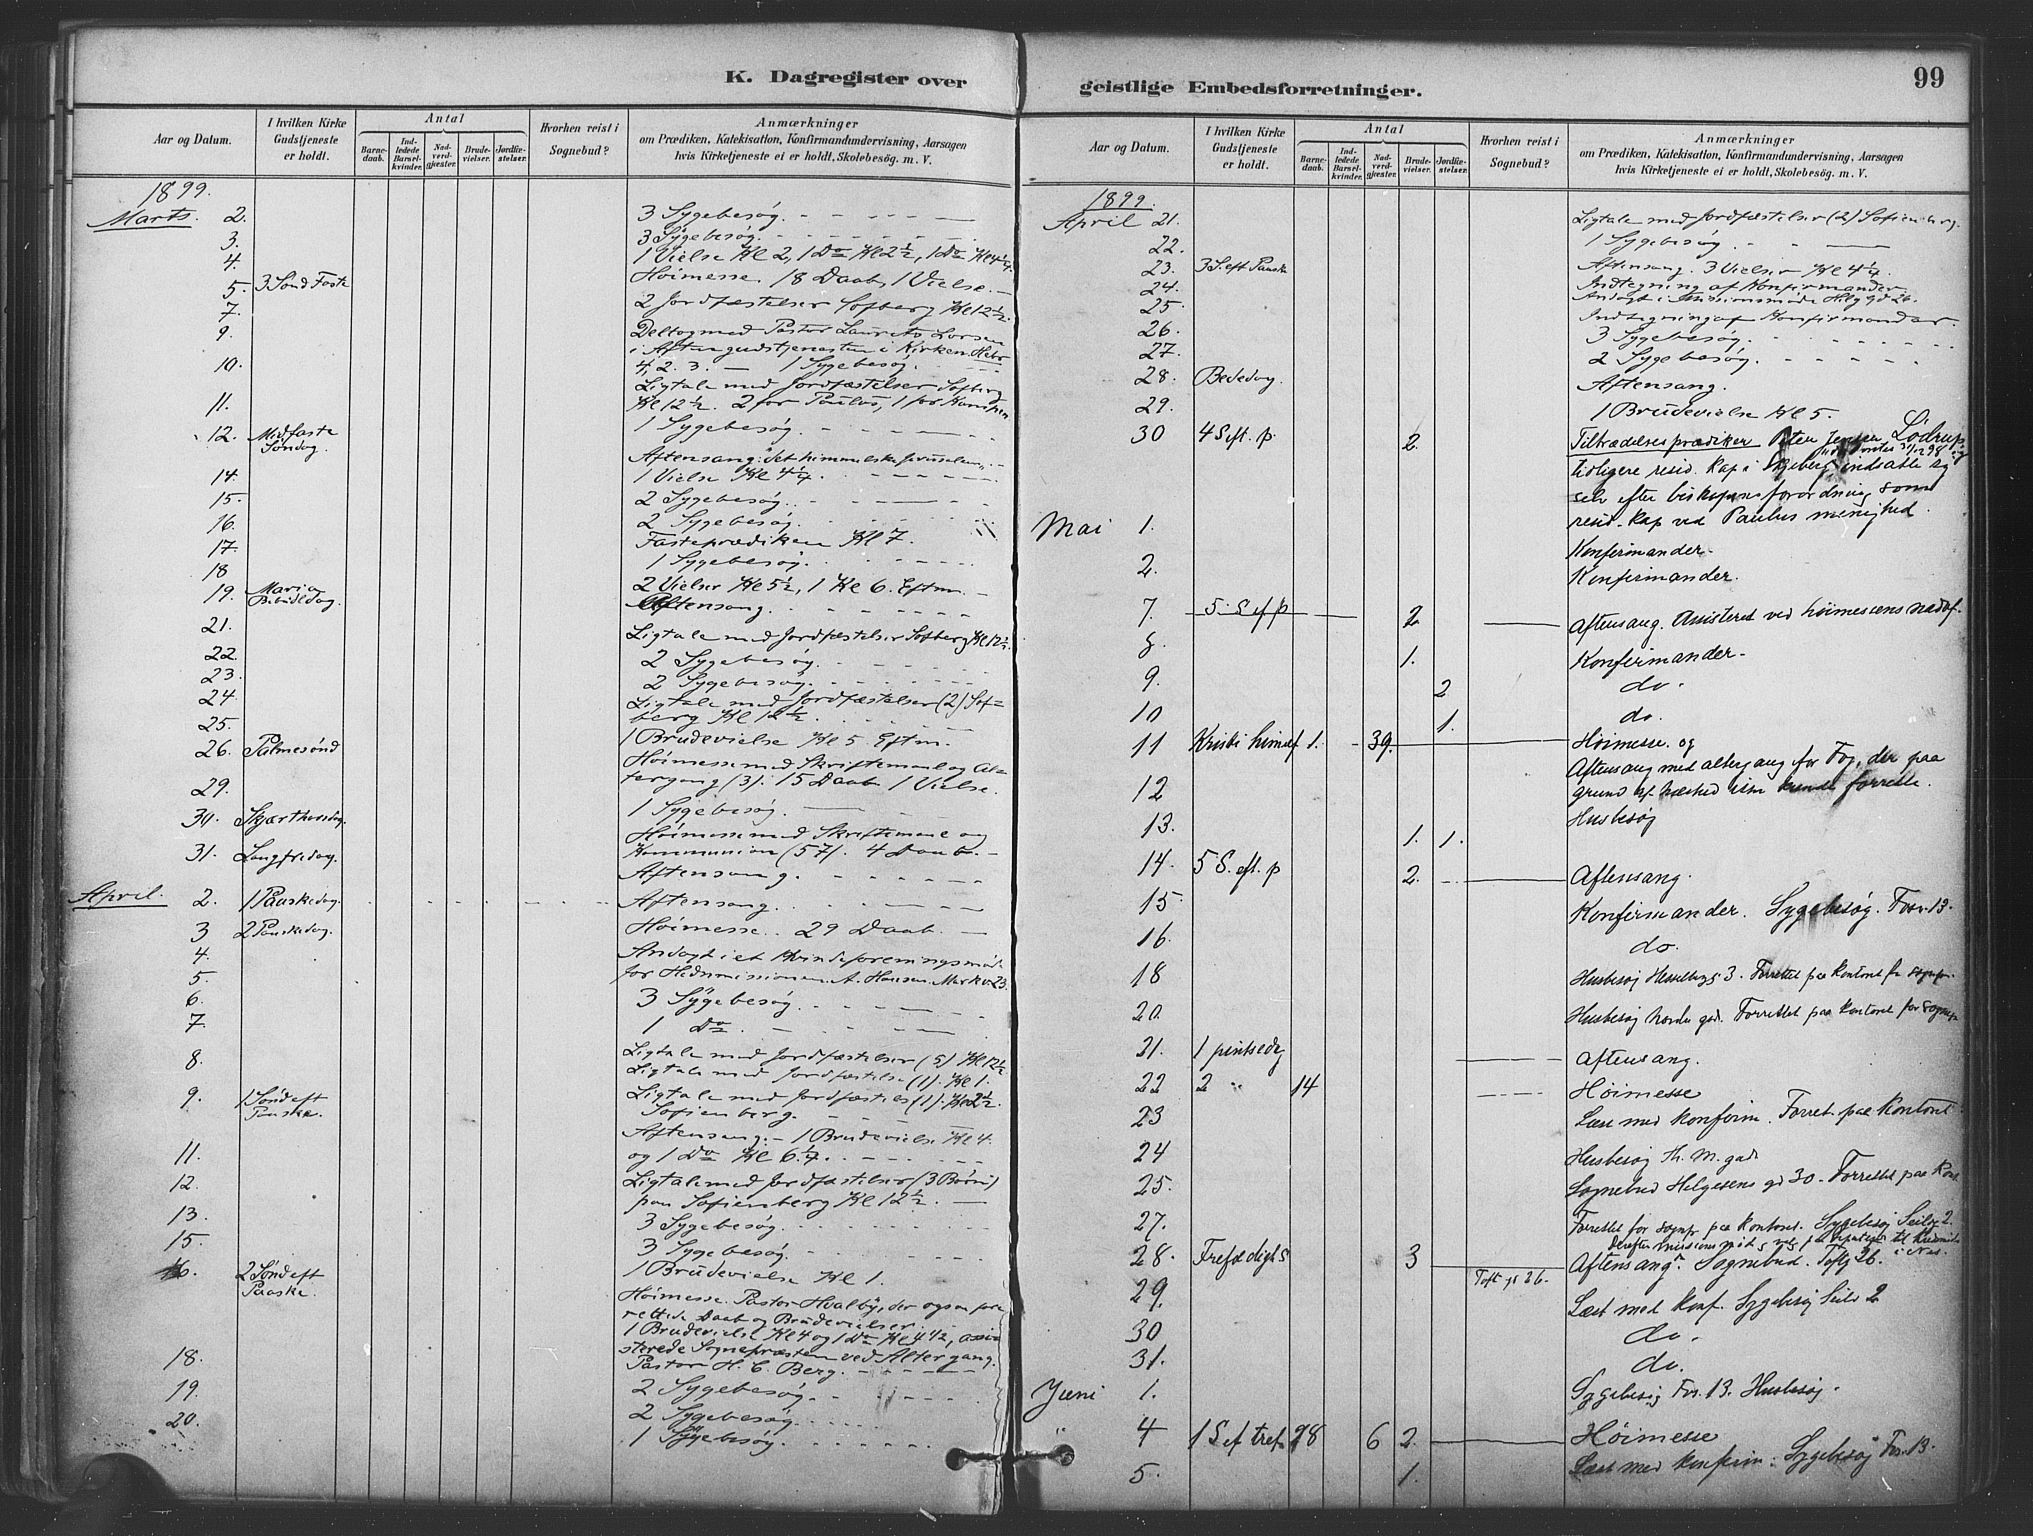 K. Dagregister over
Aar og Datum.
I hvilken Kirke Gudstjeneste er holdt.
Antal
Barnedaab.
Indledede Barselkvinder.
Nadverdgjester.
Brudevielser.
Jordfæstelser.
Hvorhen reist i Sognebud?
Anmærkninger
om Prædiken, Katekisation, Konfirmandundervisning, Aarsagen
hvis Kirketjeneste ei er holdt, Skolebesög. m. V.
1899.
Marts. 2. 3 Sygebesøg.
3. 3 Sygebesøg.
4. 1 Vielse Kl 2, 1 Do Kl 2½, 1 Do Kl 4¼.
5. 3 Sönd Faste Høimesse. 18 Daab, 1 Vielse.
7. 2 Jordfæstelser Sofberg Kl 12½.
9. Deltog med Pastor Laurits Larsen
i Aftengudstjenesten i Kirken. Hebr
4, 2. 3. — 1 Sygebesøg.
10. Ligtale med Jordfæstelser Sofberg
Kl 12½. 2 for Paulus, 1 for
11. 1 Sygebesøg.
12. Midfaste Søndag. Aftensang: det himmelske Jerusalem.
14. 1 Vielse Kl 4¼.
15. 2 Sygebesøg.
16. 2 Sygebesøg.
17. Fasteprædiken Kl 7.
18 1 Sygebesøg.
19. Mariæ Bebudelsdag. 2 Vielser Kl 5½, 1 Kl 6. Eftm.
Aftensang.
21. Ligtale med Jordfæstelser Sofberg Kl 12½.
22. 2 Sygebesøg.
23. 2 Sygebesøg.
24. Ligtale med Jordfæstelser (2) Sof=
berg Kl 12½.
25. 1 Brudevielse Kl 5 Eftm.
26. Palmesønd Høimesse med Skriftemaal og Al=
tergang (3). 15 Daab 1 Vielse.
29. 1 Sygebesøg.
30. Skjærthorsdag. Høimesse med Skriftemaal og
Kommunion (57). 4 Daab.
31. Langfredag. Aftensang.
April. 2. 1 Paaskedag. Aftensang.
3 2 Paaskedag. Høimesse. 29 Daab.
4. Andagt i et Kvindeforeningsmøde
for Hedmissionen A. Hansen. Markv 23.
5. 3 Sygebesøg.
6. 1 Do.
7. Ligtale med Jordfæstelser (5) Kl 12½
8. Ligtale med Jordfæstelse (1). Kl 1.
Ligtale med Jordfæstels (1). Kl 2½.
Sofienberg.
9. 1 Sønd eft Paaske. Aftensang. — 1 Brudevielse Kl 4.
og 1 Do Kl 6¼.
11. Ligtale med Jordfæstelser (3 Børn)
paa Sofienberg Kl 12½.
12. 3 Sygebesøg.
13. 3 Sygebesøg.
15. 1 Brudevielse Kl 1.
16. 2 Sønd eft Paaske. Høimesse. Pastor Hvalby, der ogsaa for=
rettede Daab og Brudevielser.
1 Brudevielse Kl 4 og 1 Do Kl 4½, assi=
sterede Sognepræsten ved Altergang.
Pastor H. C. Berg.
18. 2 Sygebesøg.
19. 2 Sygebesøg.
20. 1 Sygebesøg.
geistlige Embedsforretninger.
99
Aar og Datum.
I hvilken Kirke Gudstjeneste er holdt.
Antal
Barnedaab.
Indledede Barselkvinder.
Nadverdgjester.
Brudevielser.
Jordfæstelser.
Hvorhen reist i Sognebud?
Anmærkninger
om Prædiken, Katekisation, Konfirmandundervisning, Aarsagen
hvis Kirketjeneste ei er holdt, Skolebesög. m. V.
1899.
April 21. Ligtale med Jordfæstelser (2) Sofienberg.
22. 1 Sygebesøg
23. 3 S. eft Paaske Aftensang. 3 Vielser Kl 4¼.
24. Indtegning af Konfirmander
Andagt i Missionsmøde Helg Gd 26.
25. Indtegning af Konfirmander.
26. 3 Sygebesøg.
27. 2 Sygebesøg.
28. Bededag. Aftensang.
29. 1 Brudevielse Kl 5.
30 4 S eft. p. 2. Tiltrædelsesprædiken Peter Jensen Lødrup,
udnævntes 31/12 98 og
tidligere resid. Kap i Skjeberg indsatte sig
selv efter biskopens forordning som
resid. Kap ved Paulus menighed.
Mai 1. Konfirmander.
2. Konfirmander.
7. 5 S ef p 2. Aftensang. Assisteret ved høimessens nadv.
8. 1. Konfirmander.
9. 2 do.
10 1. do.
11 Kristi himmelf 1. 39. Høimesse. og
Aftensang med altergang for Fog, der paa
grund af hæshed ikke kunde forrette.
12 Husbesøg
13. 1. 1.
14. 5 S. eft. p 2. Aftensang.
15 Konfirmander. Sygebesøg. Fosv. 13.
16. do.
18 Husbesøg Hesselbergs g 3. Forrettet paa kontoret for sognepr.
20. Husbesøg Nordre gad. Forrettet paa kontoret for sognepr
21. 1 pintsedg Aftensang.
22 2 " 14 Høimesse
23 Læst med konfirm. Forret. paa kontoret.
24 Husbesøg Th. M. gade
25. Sognebud Helgesens gd 30. Forrettet paa Kont.
27. Forrettet for sognep. paa kontoret. Sygebesøg Seildg 2.
Derefter missionsmøte
28. Trefoldighs 3 Toft gt 26. Aftensang. Sognebud. Toftg 26.
29. Læst med konf. Sygebesøg Seild 2
30 do.
31. do.
Juni 1. Sygebesøg Fos. 13. Husbesøg.
4 1 S ef tref 28 6 2. Høimesse
5. 1. Læst med konfirm. Sygebesøg Fos. 13.